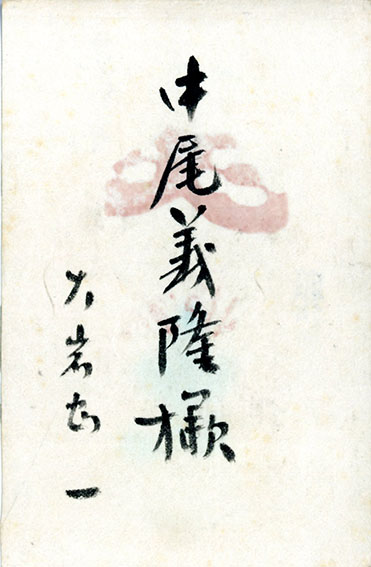 中尾義隆様
大岩𫝶一